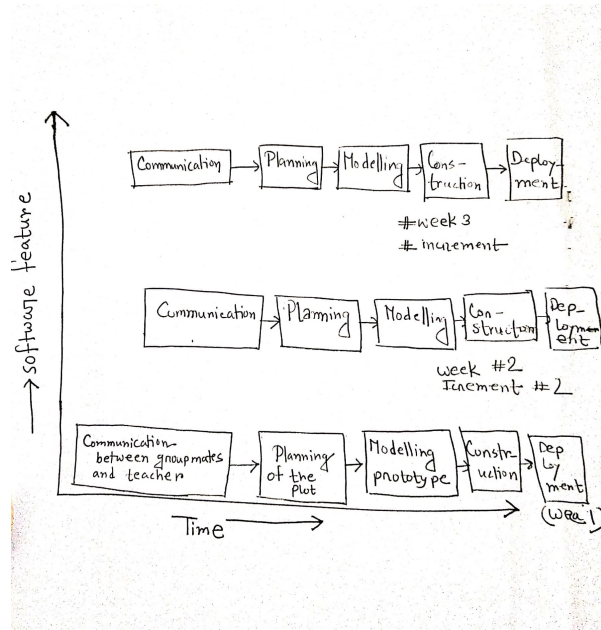 Communication
Planning
Modelling
Cons-
truction
Deploy-
ment
#week 3
# increment
→ software feature
Communication
Planning
Modelling
Con-
struction
Dep-
loyment
week #2
Increment #2
Communication
between groupmates
and teacher
Planning
of the
plot
Modelling
prototype
Constr
uction
Dep
loy
ment
Time